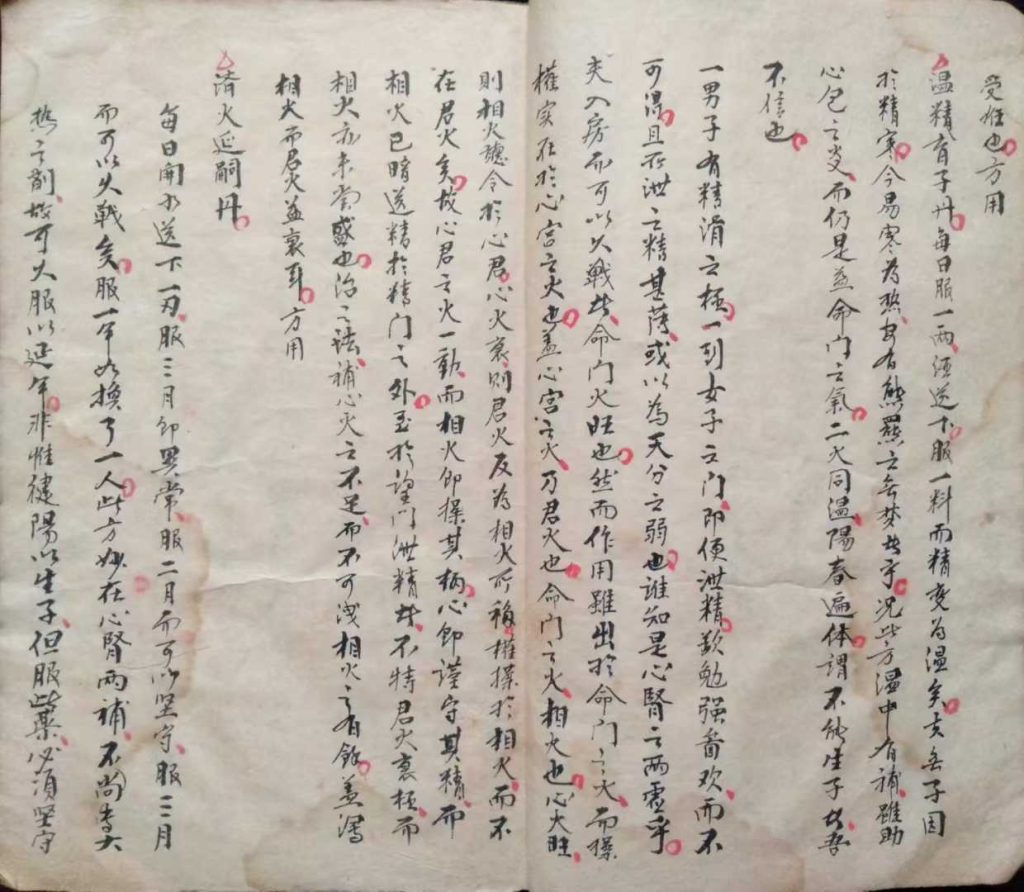 受姙也方用
温精育子丹每日服一两酒送下服一料而精变为温矣夫無子因
於精寒今易寒为热安有熊羆之無梦者乎况此方温中有補雖助
心包之火而仍是益命門之氣二火同温陽春遍体謂不能生子者吾
不信也
一男子有精滑之極一到女子之门即便泄精歎勉强畜欢而不
可得且所泄之精甚薄或以為天分之弱也谁知是心腎之两虚乎
夫入房而可以久戰者命门火旺也然而作用雖出於命门之火而操
權实在於心宫之火也盖心宫之火乃君火也命门之火相火也心火旺
則相火聽令於心君心火衰則君火反為相火所移權操於相火而不
在君火矣故心君之火一動而相火即操其柄心即謹守其精而
相火已暗送精於精门之外至於望门泄精者不特君火衰極而
相火亦未尝盛也治之法補心火之不足而不可洩相火之有餘盖瀉
相火而君火益衰耳方用
済火延嗣丹
每日開水送下一刃服三月即異常服二月而可以坚守服三月
而可以久戰矣服一年如换了一人此方妙在心腎两補不尚専大
热之剤故可久服以延年非惟健陽以生子但服此藥必須坚守